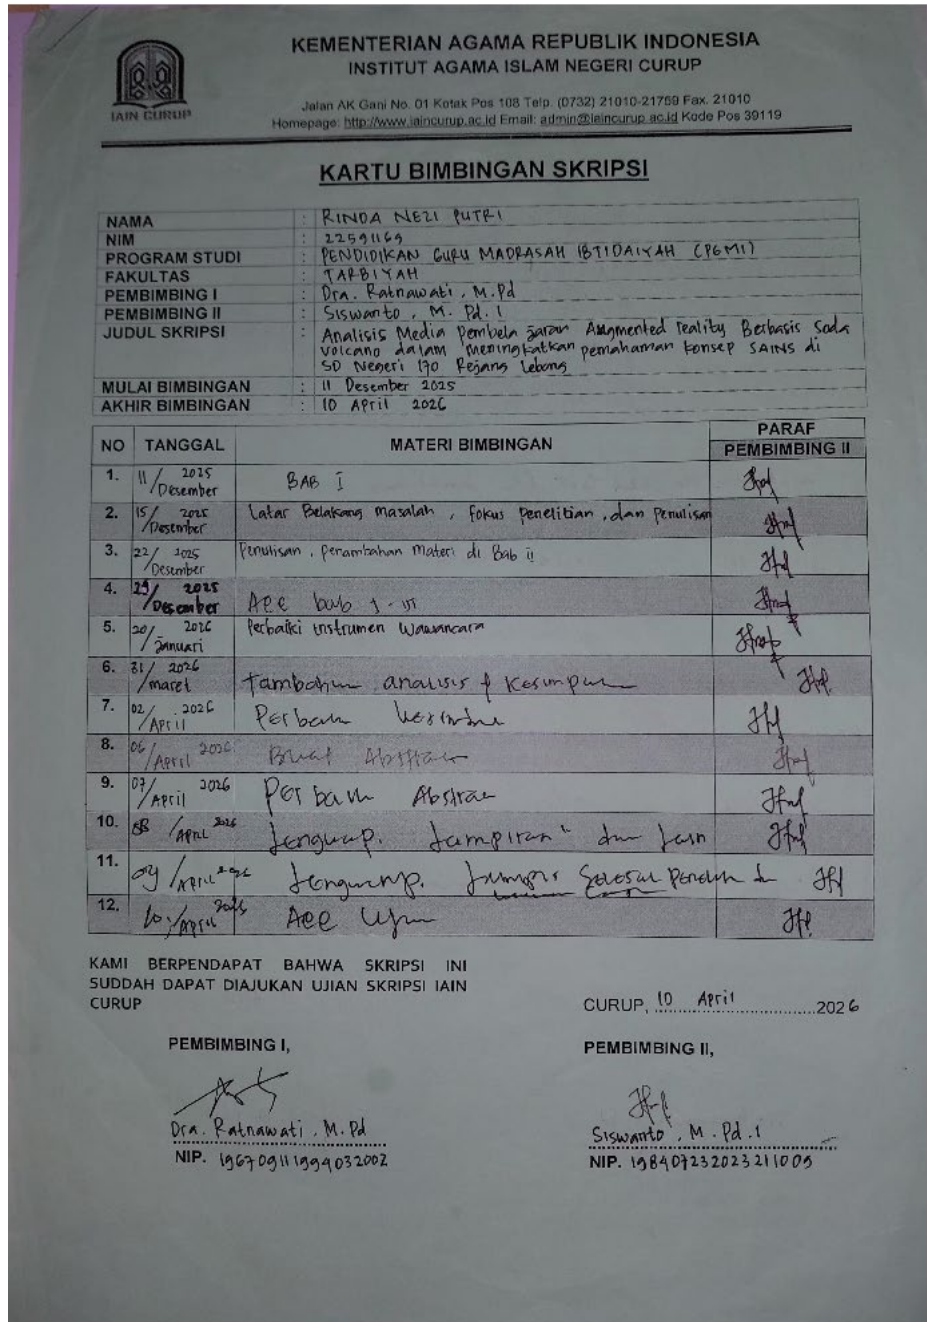 IAIN CURUP
KEMENTERIAN AGAMA REPUBLIK INDONESIA
INSTITUT AGAMA ISLAM NEGERI CURUP
Jalan AK Gani No. 01 Kotak Pos 108 Telp. (0732) 21010-21759 Fax. 21010
Homepage: http://www.iaincurup.ac.id Email: admin@iaincurup.ac.id Kode Pos 39119
KARTU BIMBINGAN SKRIPSI
NAMA : RINDA NEZI PUTRI
NIM : 22591169
PROGRAM STUDI : PENDIDIKAN GURU MADRASAH IBTIDAIYAH (PGMI)
FAKULTAS : TARBIYAH
PEMBIMBING I : Dra. Ratnawati, M.Pd
PEMBIMBING II : Siswanto, M. Pd. I
JUDUL SKRIPSI : Analisis Media Pembelajaran Augmented reality Berbasis Soda
volcano dalam meningkatkan pemahaman konsep SAINS di
SD Negeri 170 Rejang Lebong
MULAI BIMBINGAN : 11 Desember 2025
AKHIR BIMBINGAN : 10 April 2026
NO TANGGAL MATERI BIMBINGAN PARAF
PEMBIMBING II
1. 11/Desember 2025 BAB I
2. 15/Desember 2025 Latar Belakang masalah, fokus penelitian, dan penulisan
3. 22/Desember 2025 Penulisan, penambahan Materi di Bab ii
4. 29/Desember 2025 Acc bab I-III
5. 20/Januari 2026 Perbaiki instrumen Wawancara
6. 31/maret 2026 Tambahan analisis & Kesimpulan
7. 02/April 2026 Perbaiki
8. 06/April 2026 Buat Abstrak
9. 07/April 2026 Perbaiki Abstrak
10. 08/April 2026 Lengkap. Lampiran" dan lain
11. 09/April 2026
12. 10/April 2026 Acc Ujian
KAMI BERPENDAPAT BAHWA SKRIPSI INI
SUDDAH DAPAT DIAJUKAN UJIAN SKRIPSI IAIN
CURUP
CURUP, 10 April 2026
PEMBIMBING I,
PEMBIMBING II,
Dra. Ratnawati, M.Pd
Siswanto, M. Pd. I
NIP. 196709111994032002
NIP. 198407232023211009